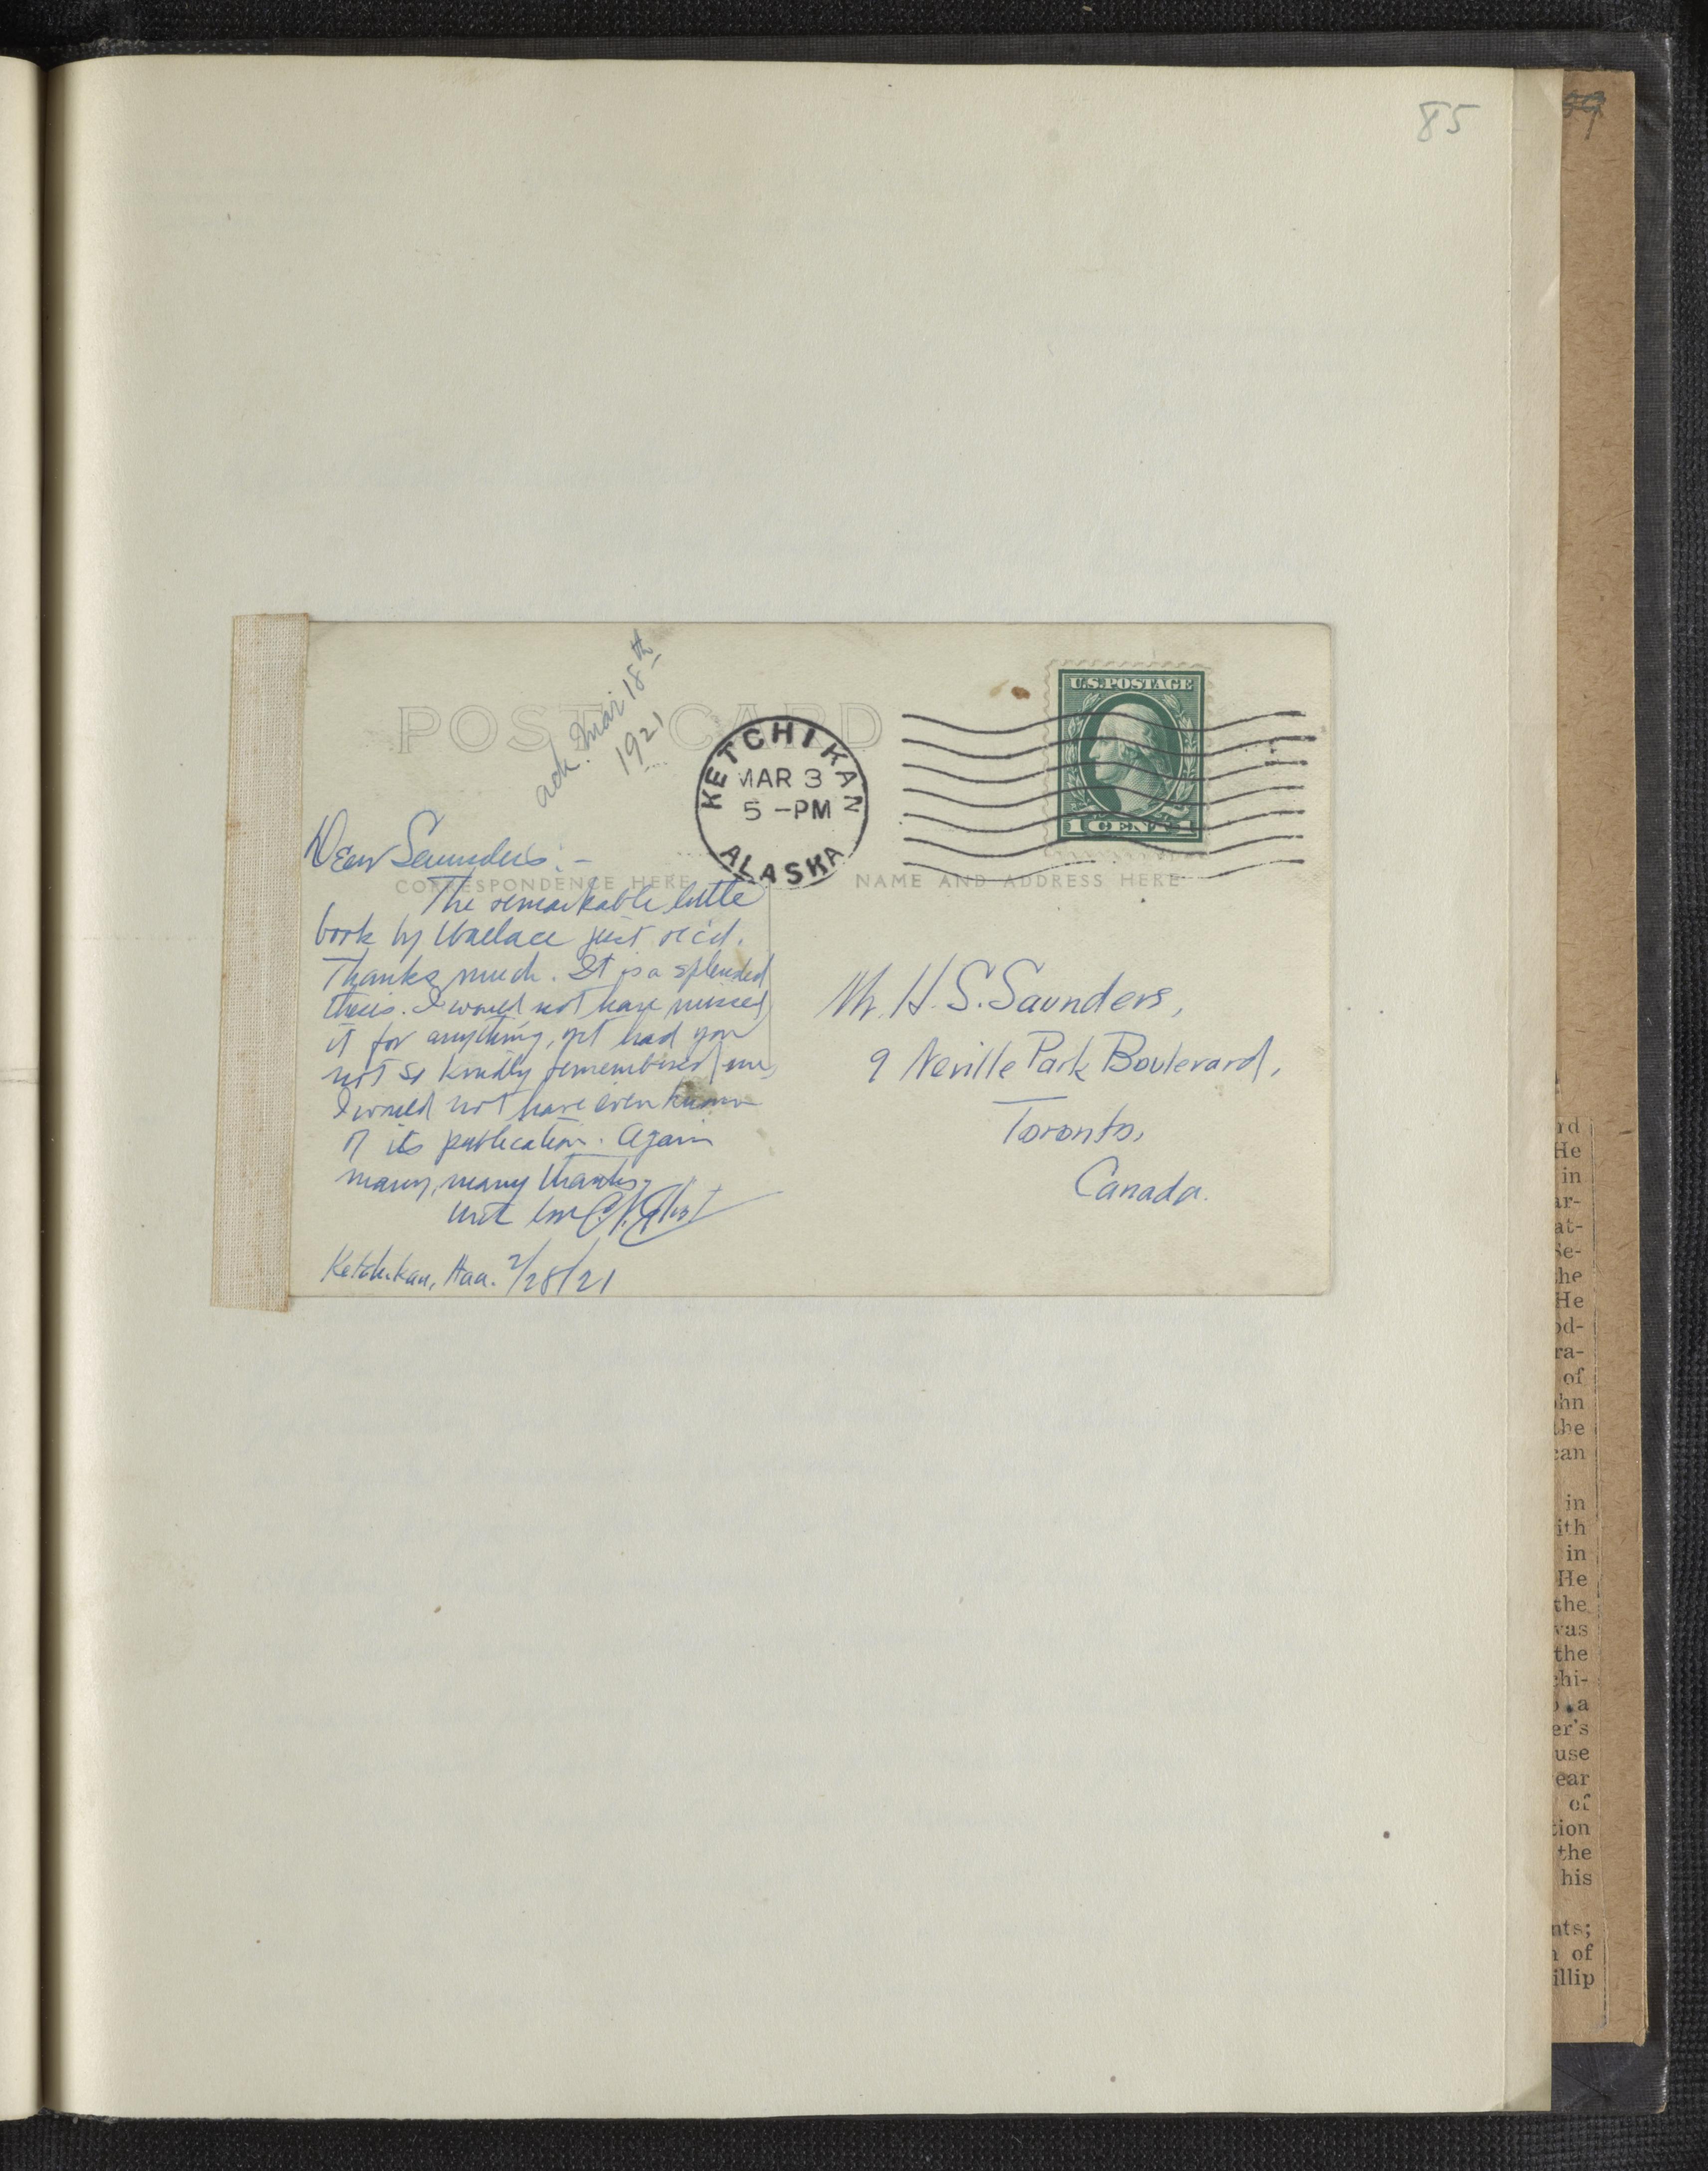 85
59
ack. Mar 18th
1921
POST CARD
KETCHIKAN
MAR 3
5 -PM
ALASKA
U.S. POSTAGE
1 CENT 1
CORRESPONDENCE HERE
NAME AND ADDRESS HERE
Dear Saunders: -
The remarkable little
book by Wallace just rec'd.
Thanks much. It is a splendid
thesis. I would not have missed
it for anything, yet had you
not so kindly remembered me,
I would not have even known
of its publication. Again
many, many thanks,
with love C.N. Elliot
Ketchikan, Alaa. 2/28/21
Mr. H. S. Saunders,
9 Neville Park Boulevard,
Toronto,
Canada.
rd
He
in
ar-
at-
Se-
the
He
od-
ra-
of
ohn
the
can
in
ith
in
He
the
vas
the
chi-
a
er's
use
ear
of
tion
the
his
nts;
n of
illip